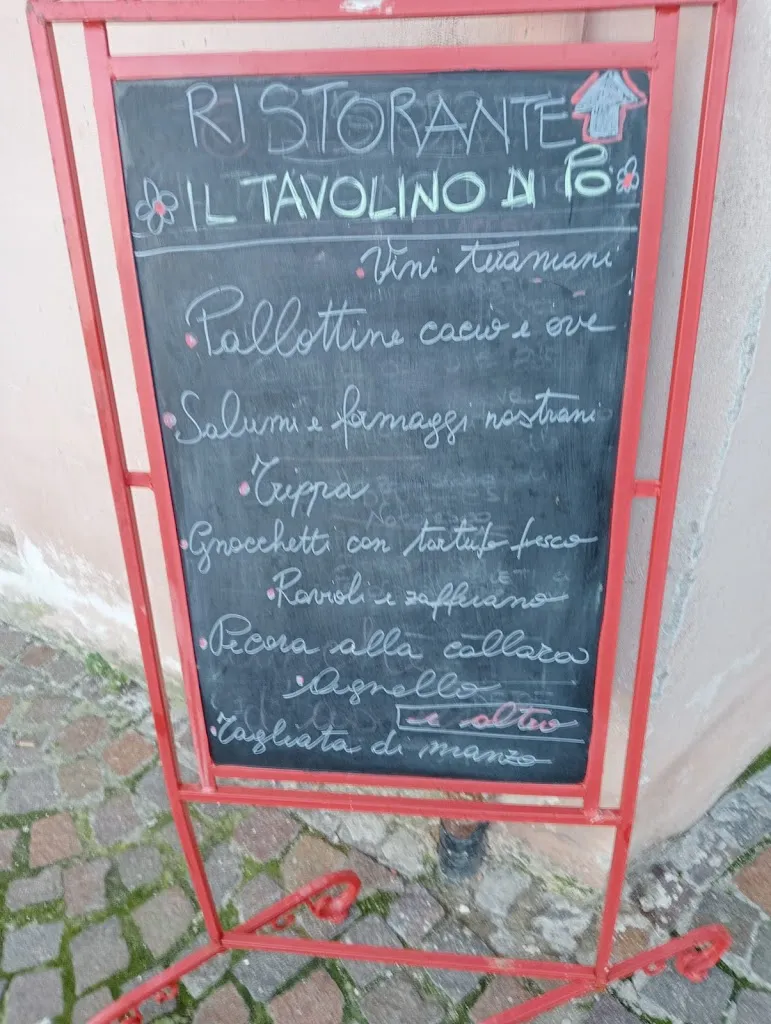 RISTORANTE
IL TAVOLINO DI PÒ
Vini teramani
Pallottine cacio e ove
Salumi e formaggi nostrani
Trippa
Gnocchetti con tartufo fresco
Ravioli e zafferano
Pecora alla callara
Agnello
e altro
Tagliata di manzo